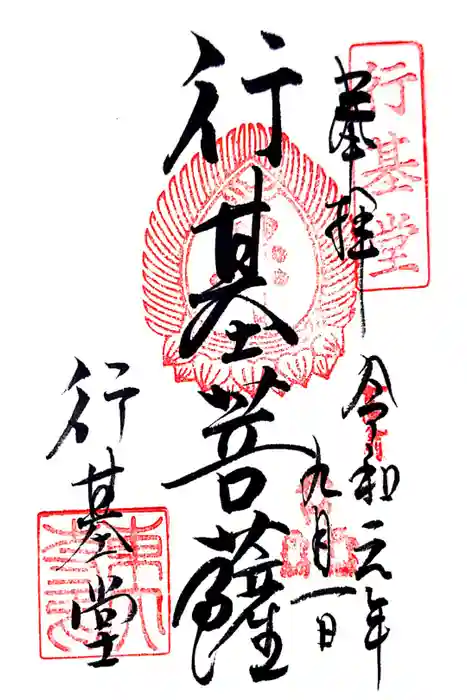 行基堂
奉拝
令和元年
九月一日
行基菩薩
行基堂